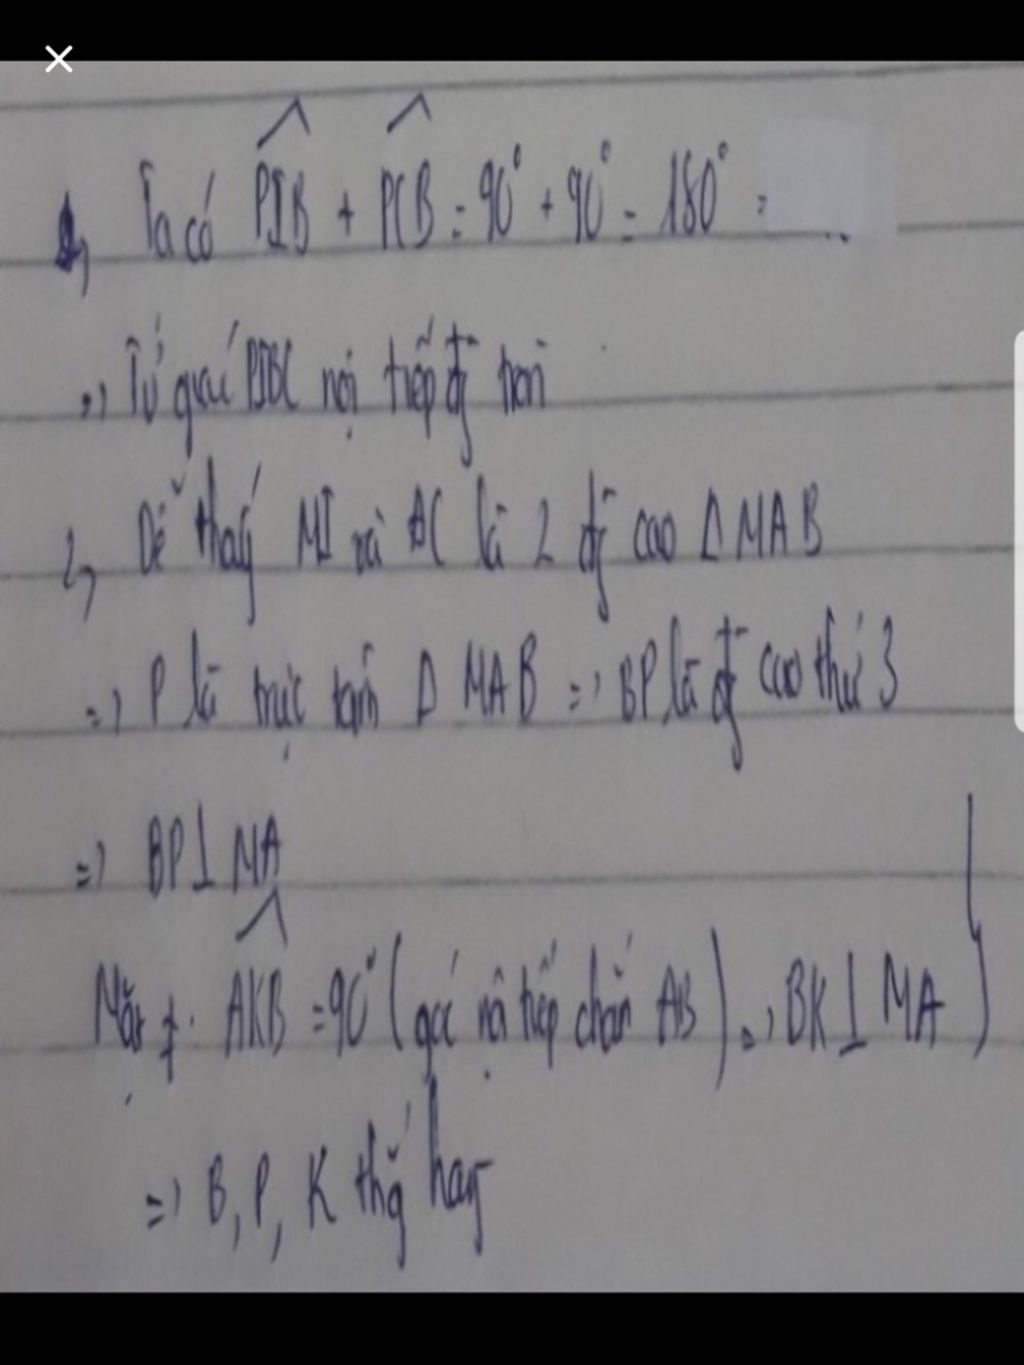 1, Ta có PIB + PCB = 90° + 90° = 180°
=> Tứ giác PIBC nội tiếp đg tròn
2, Dễ thấy MI và AC là 2 đg cao Δ MAB
=> P là trực tâm Δ MAB => BP là đg cao thứ 3
=> BP ⊥ MA
Mặt ≠. AKB = 90° (góc nội tiếp chắn AB) => BK ⊥ MA
=> B, P, K thẳg hàg